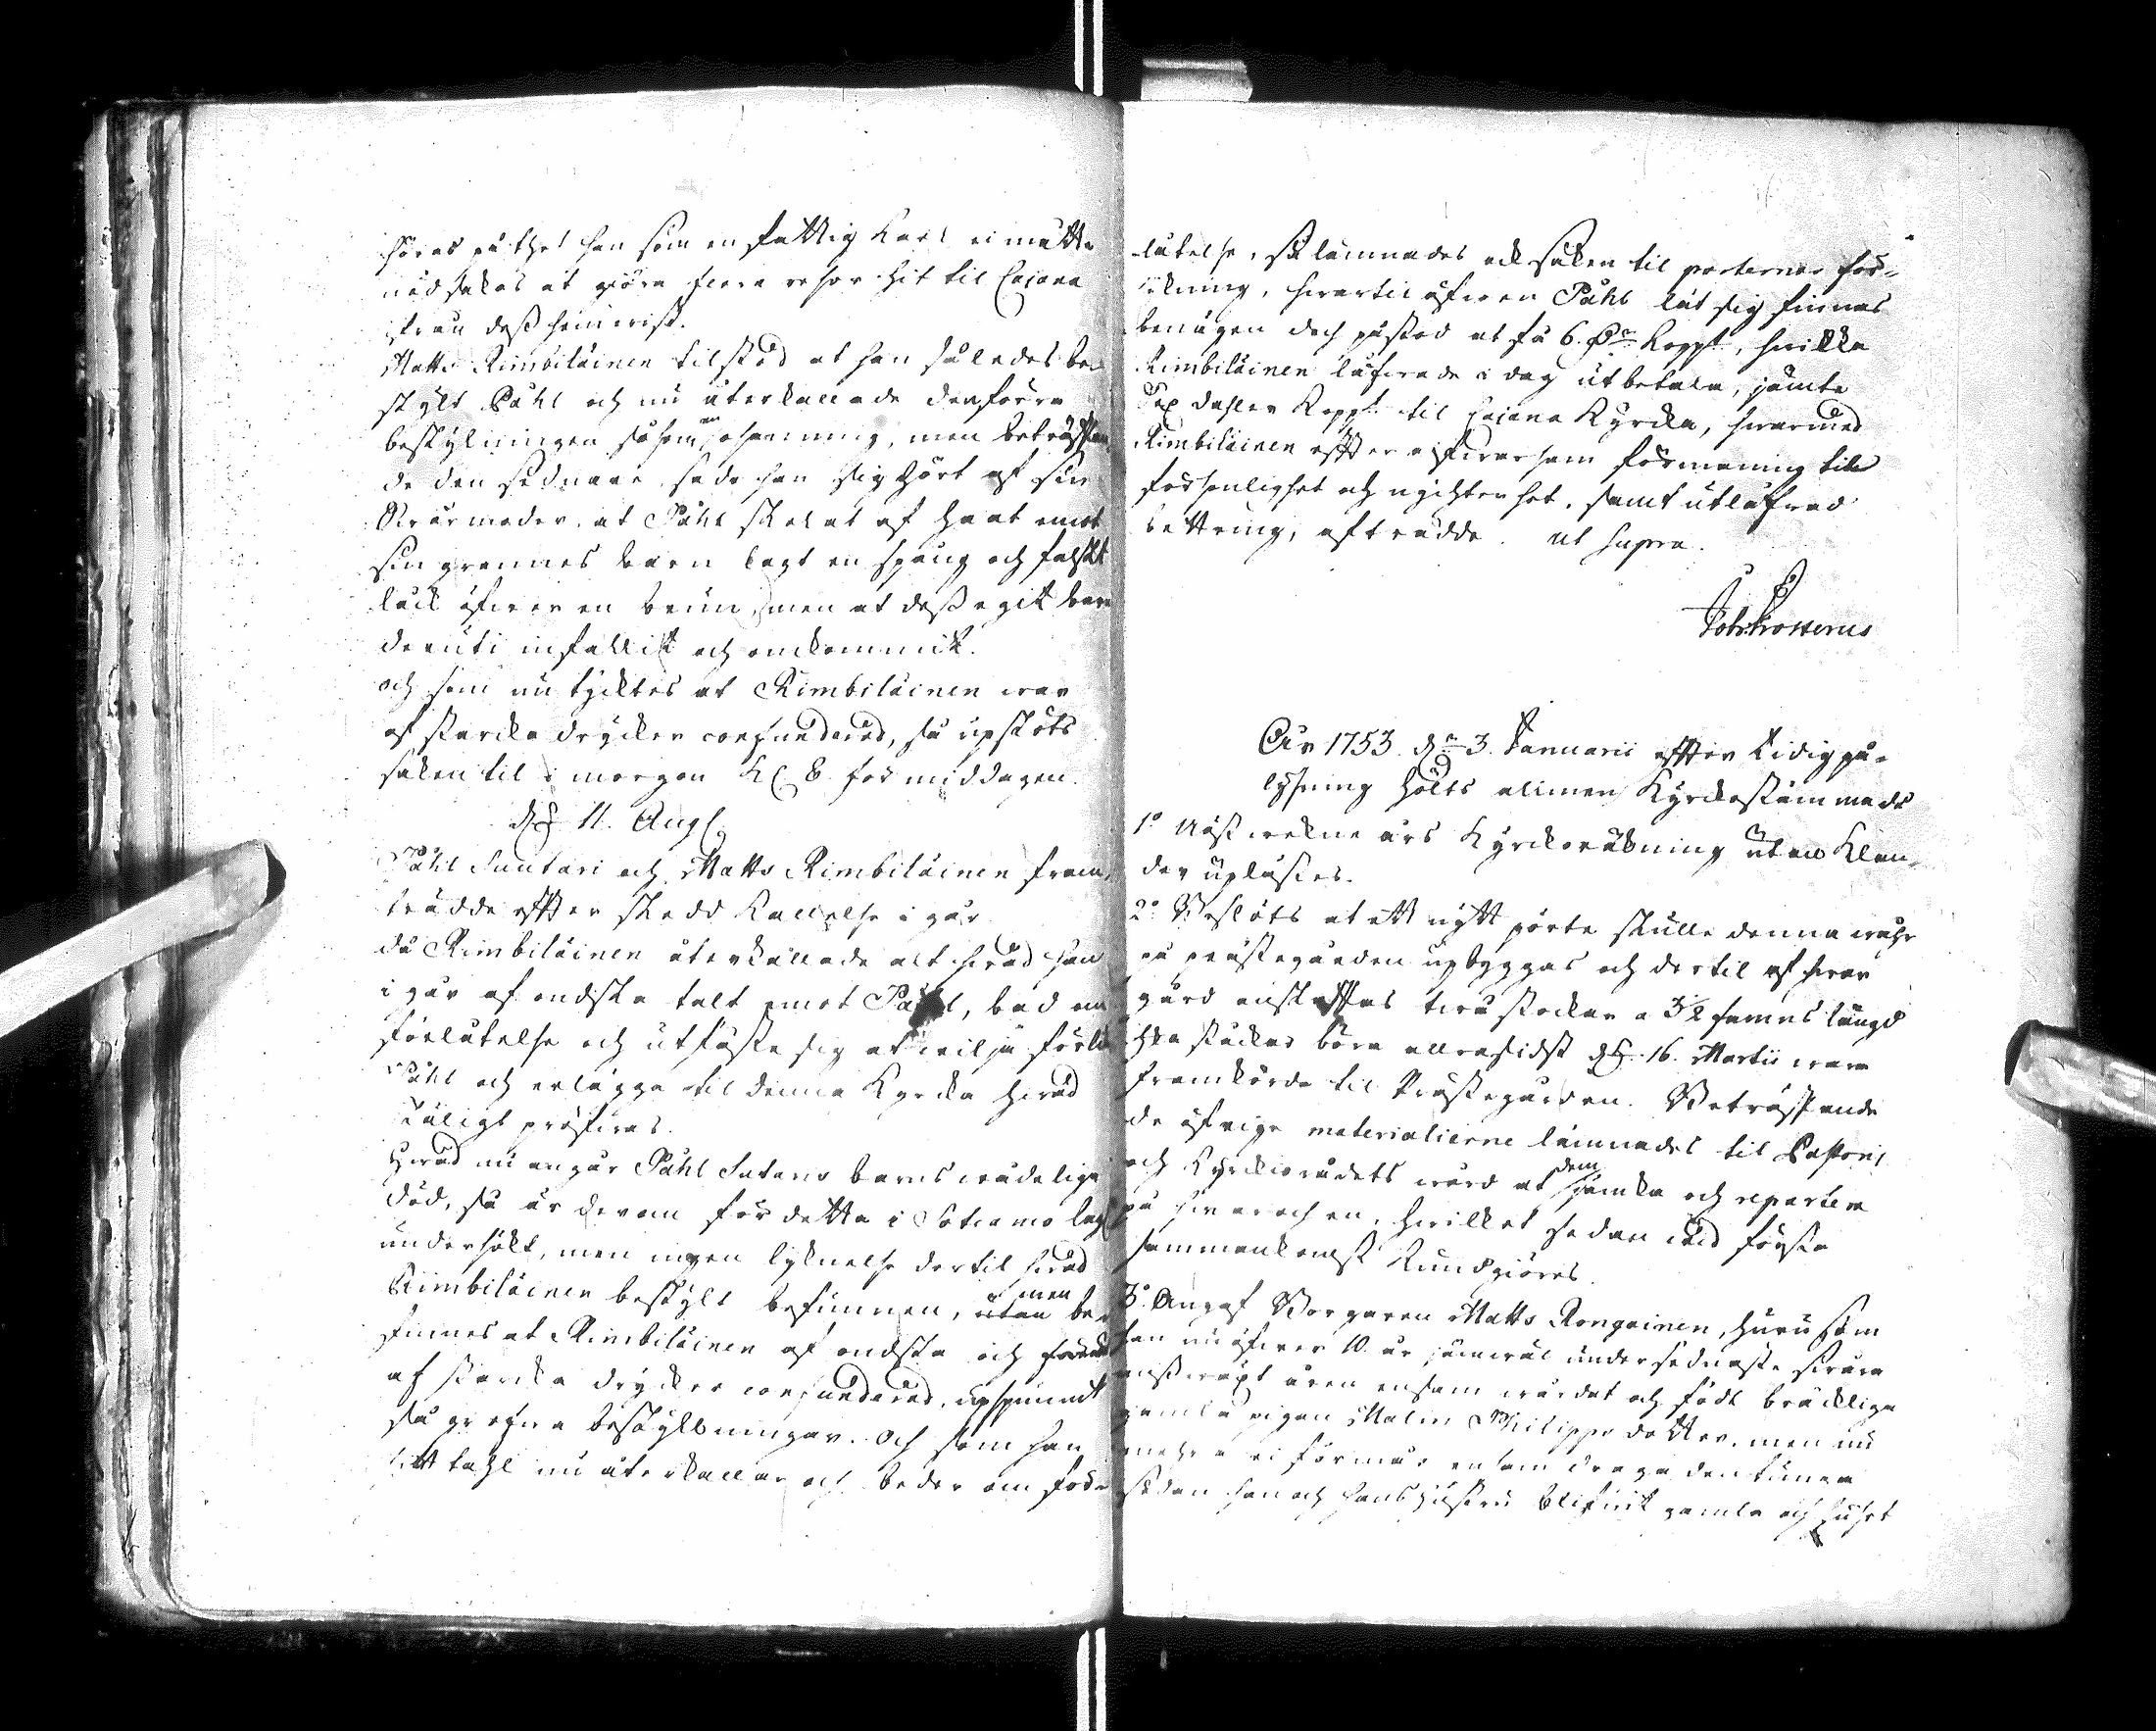 höras på thet han som en fattig Karl ei måtte
nödsakas at giöra flera resor hit til Cajana
ifrån dess hemvist.
Matts Kimbiläinen tilstod at han således be-
skylt Påhl och nu återkallade den förra
beskylningen såsom en osanning, men beträffan-
de den sednare sade han sig hört af sin
Svärmoder, at Påhl skolat af haat emot
sin grannes barn lagt en spång och falskt
låck öfver en brun, men at dess eget barn
deruti infallit och omkommit.
och som nu tycktes at Kimbiläinen war
af starcka drycker confunderad, så upskiöts
saken til i morgon Kl. 8 för middagen.
d. 11. Aug.
Påhl Suutari och Matts Kimbiläinen fram-
trädde effter skedd Kallelse i går
då Kimbiläinen återkallade alt hwad han
i går af ondska talt emot Påhl, bad om
förlåtelse och utfäste sig at wilja förlika
Påhl och erlägga til denna Kyrcka hwad
skäligt pröfwas.
Hwad nu angår Påhl Sutaris barns wådeliga
död, så är derom för detta i Sotcamo lagl.
undersökt, men ingen lyknelse dertil hwad
Kimbiläinen beskylt befunnen, utan men be-
finnes at Kimbiläinen af ondska och
af starcka drycker confunderad, upspunnit
så grofva beskyllningar. Och som han
sitt tahl nu återkallar och beder om för-
låtelse, så lämnades ock saken til parternas för-
likning, hwartil äfwen Påhl lät sig finnas
benägen doch påstod at få 6. Dr Koppt, hwilka
Kimbiläinen låfwade i dag utbetala, jämte
Sex daler Koppt til Cajana Kyrcka, hwarmed
Kimbiläinen effter alfwarsam förmaning til
försonlighet och nychterhet, samt utlåfwad
bettring, afträdde. ut supra.
Joh: Frosterus
Åhr 1753. d. 3. Januarii effter tidig på-
lysning hölts allmen Kyrckostämma då
1o Näst wekne års Kyrckoräkning utan Klan-
der uplästes.
2o Beslöts at ett nytt pörte skulle denna wåhr
på prästegården upbyggas och dertil af hwar
gård anskaffas twå stockar a 3 1/2 famns längd
hka stockar böra allrasidst d. 16. Martii wara
framkörda til Prästegården. Beträffande
de öfrige materialierne lämnades til Pastoris
och Kyrckiorådets wård at dem jämka och repartera
på hwar och en, hwilket sedan wid första
sammankomst Kundgiöres.
3o. Angaf Borgaren Matts Rongainen, huru som
han nu öfwer 10. år jämwäl under sednaste swåra
missväxt åren ensam wårdat och födt bräcklige
gamla pigan Malin Philips dotter, men nu
mehra ei förmår ensam draga den tunga
sedan han och hans hustru blifwit gamla och